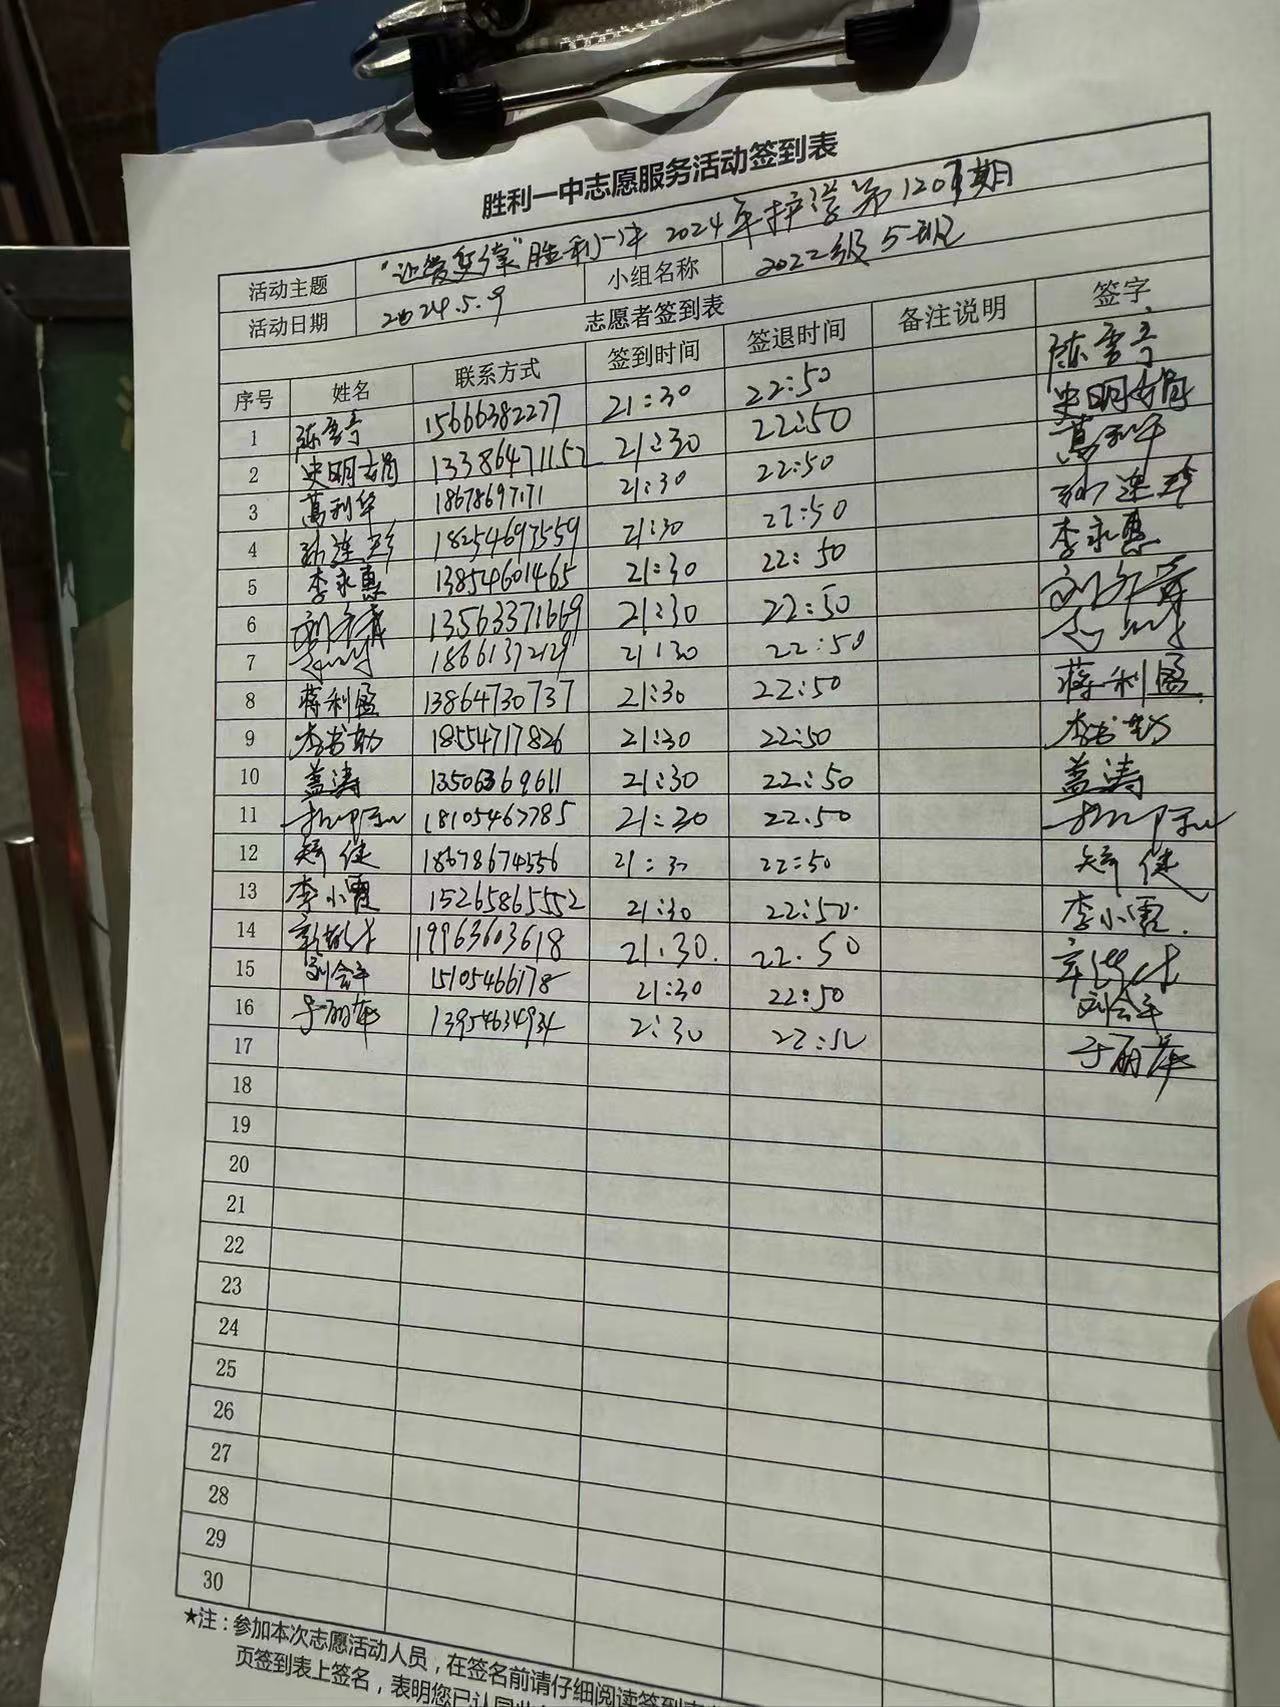 胜利一中志愿服务活动签到表
活动主题 "让爱 "胜利一中 2024年护学第120期
活动日期 2024.5.9 小组名称 2022级5班
志愿者签到表
序号 姓名 联系方式 签到时间 签退时间 备注说明 签字
1 陈雪亭 15666382277 21:30 22:50 陈雪亭
2 史明 13386471152 21:30 22:50 史明
3 葛利华 18678697171 21:30 22:50 葛利华
4 孙连 18254693559 21:30 22:50 孙连
5 李永惠 13854601465 21:30 22:50 李永惠
6 刘 13563371669 21:30 22:50 刘
7 18661372129 21:30 22:50
8 蒋利 13864730737 21:30 22:50 蒋利
9 李 18554717826 21:30 22:50 李
10 盖涛 13506369611 21:30 22:50 盖涛
11 18105467785 21:30 22.50
12 健 18678674556 21:30 22:50 健
13 李小霞 15265865552 21:30 22:50. 李小霞
14 19963603618 21:30. 22:50
15 刘会平 15105466178 21:30 22:50 刘会平
16 于丽华 13954634934 2:30 22:50 于丽华
17
18
19
20
21
22
23
24
25
26
27
28
29
30
★注：参加本次志愿活动人员，在签名前请仔细阅读签到表
页签到表上签名，表明您已认同此